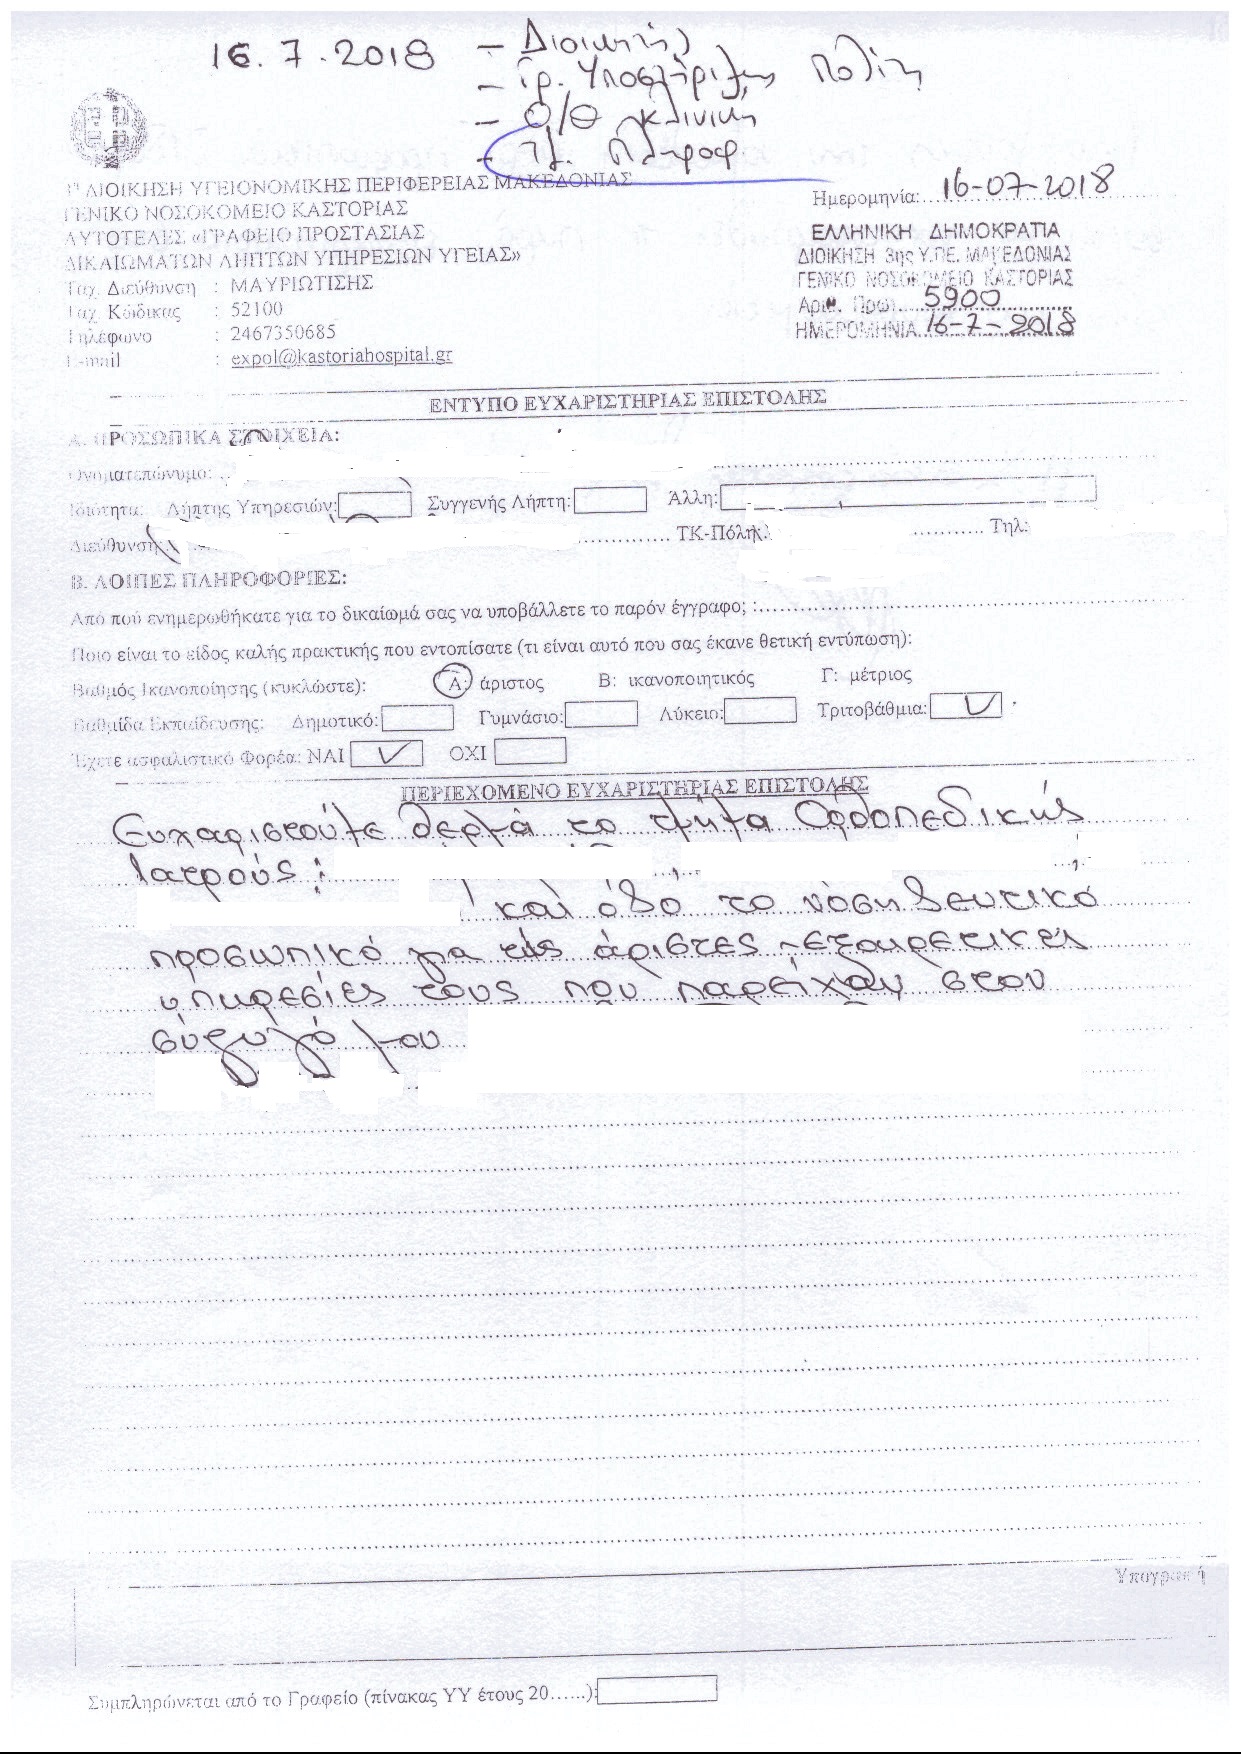 16.7.2018 – Διοικητής
– Γρ. Υποστήριξης Πολίτη
– Ο/Θ κλινική
– Τμ. Πληροφ
Γ' ΔΙΟΙΚΗΣΗ ΥΓΕΙΟΝΟΜΙΚΗΣ ΠΕΡΙΦΕΡΕΙΑΣ ΜΑΚΕΔΟΝΙΑΣ
ΓΕΝΙΚΟ ΝΟΣΟΚΟΜΕΙΟ ΚΑΣΤΟΡΙΑΣ
ΑΥΤΟΤΕΛΕΣ «ΓΡΑΦΕΙΟ ΠΡΟΣΤΑΣΙΑΣ
ΔΙΚΑΙΩΜΑΤΩΝ ΛΗΠΤΩΝ ΥΠΗΡΕΣΙΩΝ ΥΓΕΙΑΣ»
Ταχ. Διεύθυνση : ΜΑΥΡΙΩΤΙΣΗΣ
Ταχ. Κώδικας : 52100
Τηλέφωνο : 2467350685
E-mail : expol@kastoriahospital.gr
Ημερομηνία: 16-07-2018
ΕΛΛΗΝΙΚΗ ΔΗΜΟΚΡΑΤΙΑ
ΔΙΟΙΚΗΣΗ 3ης Υ.ΠΕ. ΜΑΚΕΔΟΝΙΑΣ
ΓΕΝΙΚΟ ΝΟΣΟΚΟΜΕΙΟ ΚΑΣΤΟΡΙΑΣ
Αριθ. Πρωτ. 5900
ΗΜΕΡΟΜΗΝΙΑ 16-7-2018
ΕΝΤΥΠΟ ΕΥΧΑΡΙΣΤΗΡΙΑΣ ΕΠΙΣΤΟΛΗΣ
Α. ΠΡΟΣΩΠΙΚΑ ΣΤΟΙΧΕΙΑ:
Ονοματεπώνυμο:
Ιδιότητα: Λήπτης Υπηρεσιών: Συγγενής Λήπτη: Άλλη:
Διεύθυνση: ΤΚ-Πόλη: Τηλ:
Β. ΛΟΙΠΕΣ ΠΛΗΡΟΦΟΡΙΕΣ:
Από πού ενημερωθήκατε για το δικαίωμά σας να υποβάλλετε το παρόν έγγραφο; :
Ποιο είναι το είδος καλής πρακτικής που εντοπίσατε (τι είναι αυτό που σας έκανε θετική εντύπωση):
Βαθμός Ικανοποίησης (κυκλώστε): Α: άριστος Β: ικανοποιητικός Γ: μέτριος
Βαθμίδα Εκπαίδευσης: Δημοτικό: Γυμνάσιο: Λύκειο: Τριτοβάθμια: ✓
Έχετε ασφαλιστικό Φορέα: ΝΑΙ ✓ ΟΧΙ
ΠΕΡΙΕΧΟΜΕΝΟ ΕΥΧΑΡΙΣΤΗΡΙΑΣ ΕΠΙΣΤΟΛΗΣ
Ευχαριστούμε θερμά το τμήμα Ορθοπεδικής
Ιατρούς:
και όλο το νοσηλευτικό
προσωπικό για τις άριστες - εξαιρετικές
υπηρεσίες τους που παρείχαν στον
σύζυγό μου
Υπογραφή
Συμπληρώνεται από το Γραφείο (πίνακας ΥΥ έτους 20......):